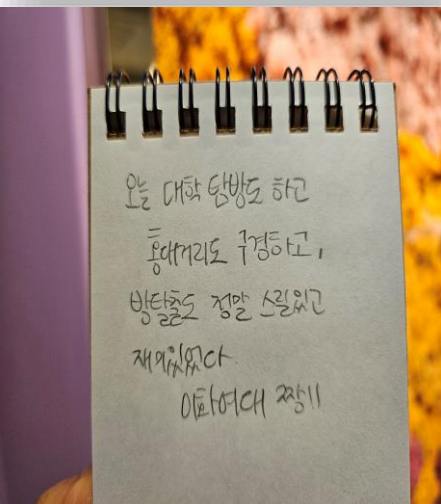 오늘 대학 탐방도 하고
홍대거리도 구경하고,
방탈출도 정말 스릴있고
재미있었다
이화여대 짱!!